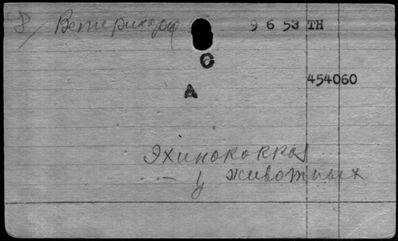 8/ Ветеринария 9 6 53 TH
C
454060
A
Эхинококкоз
-- у животных